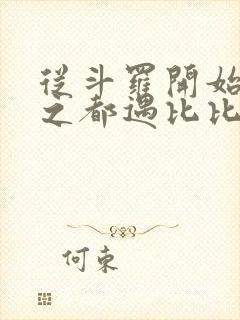 從斗羅開始
之都遇比比
何東